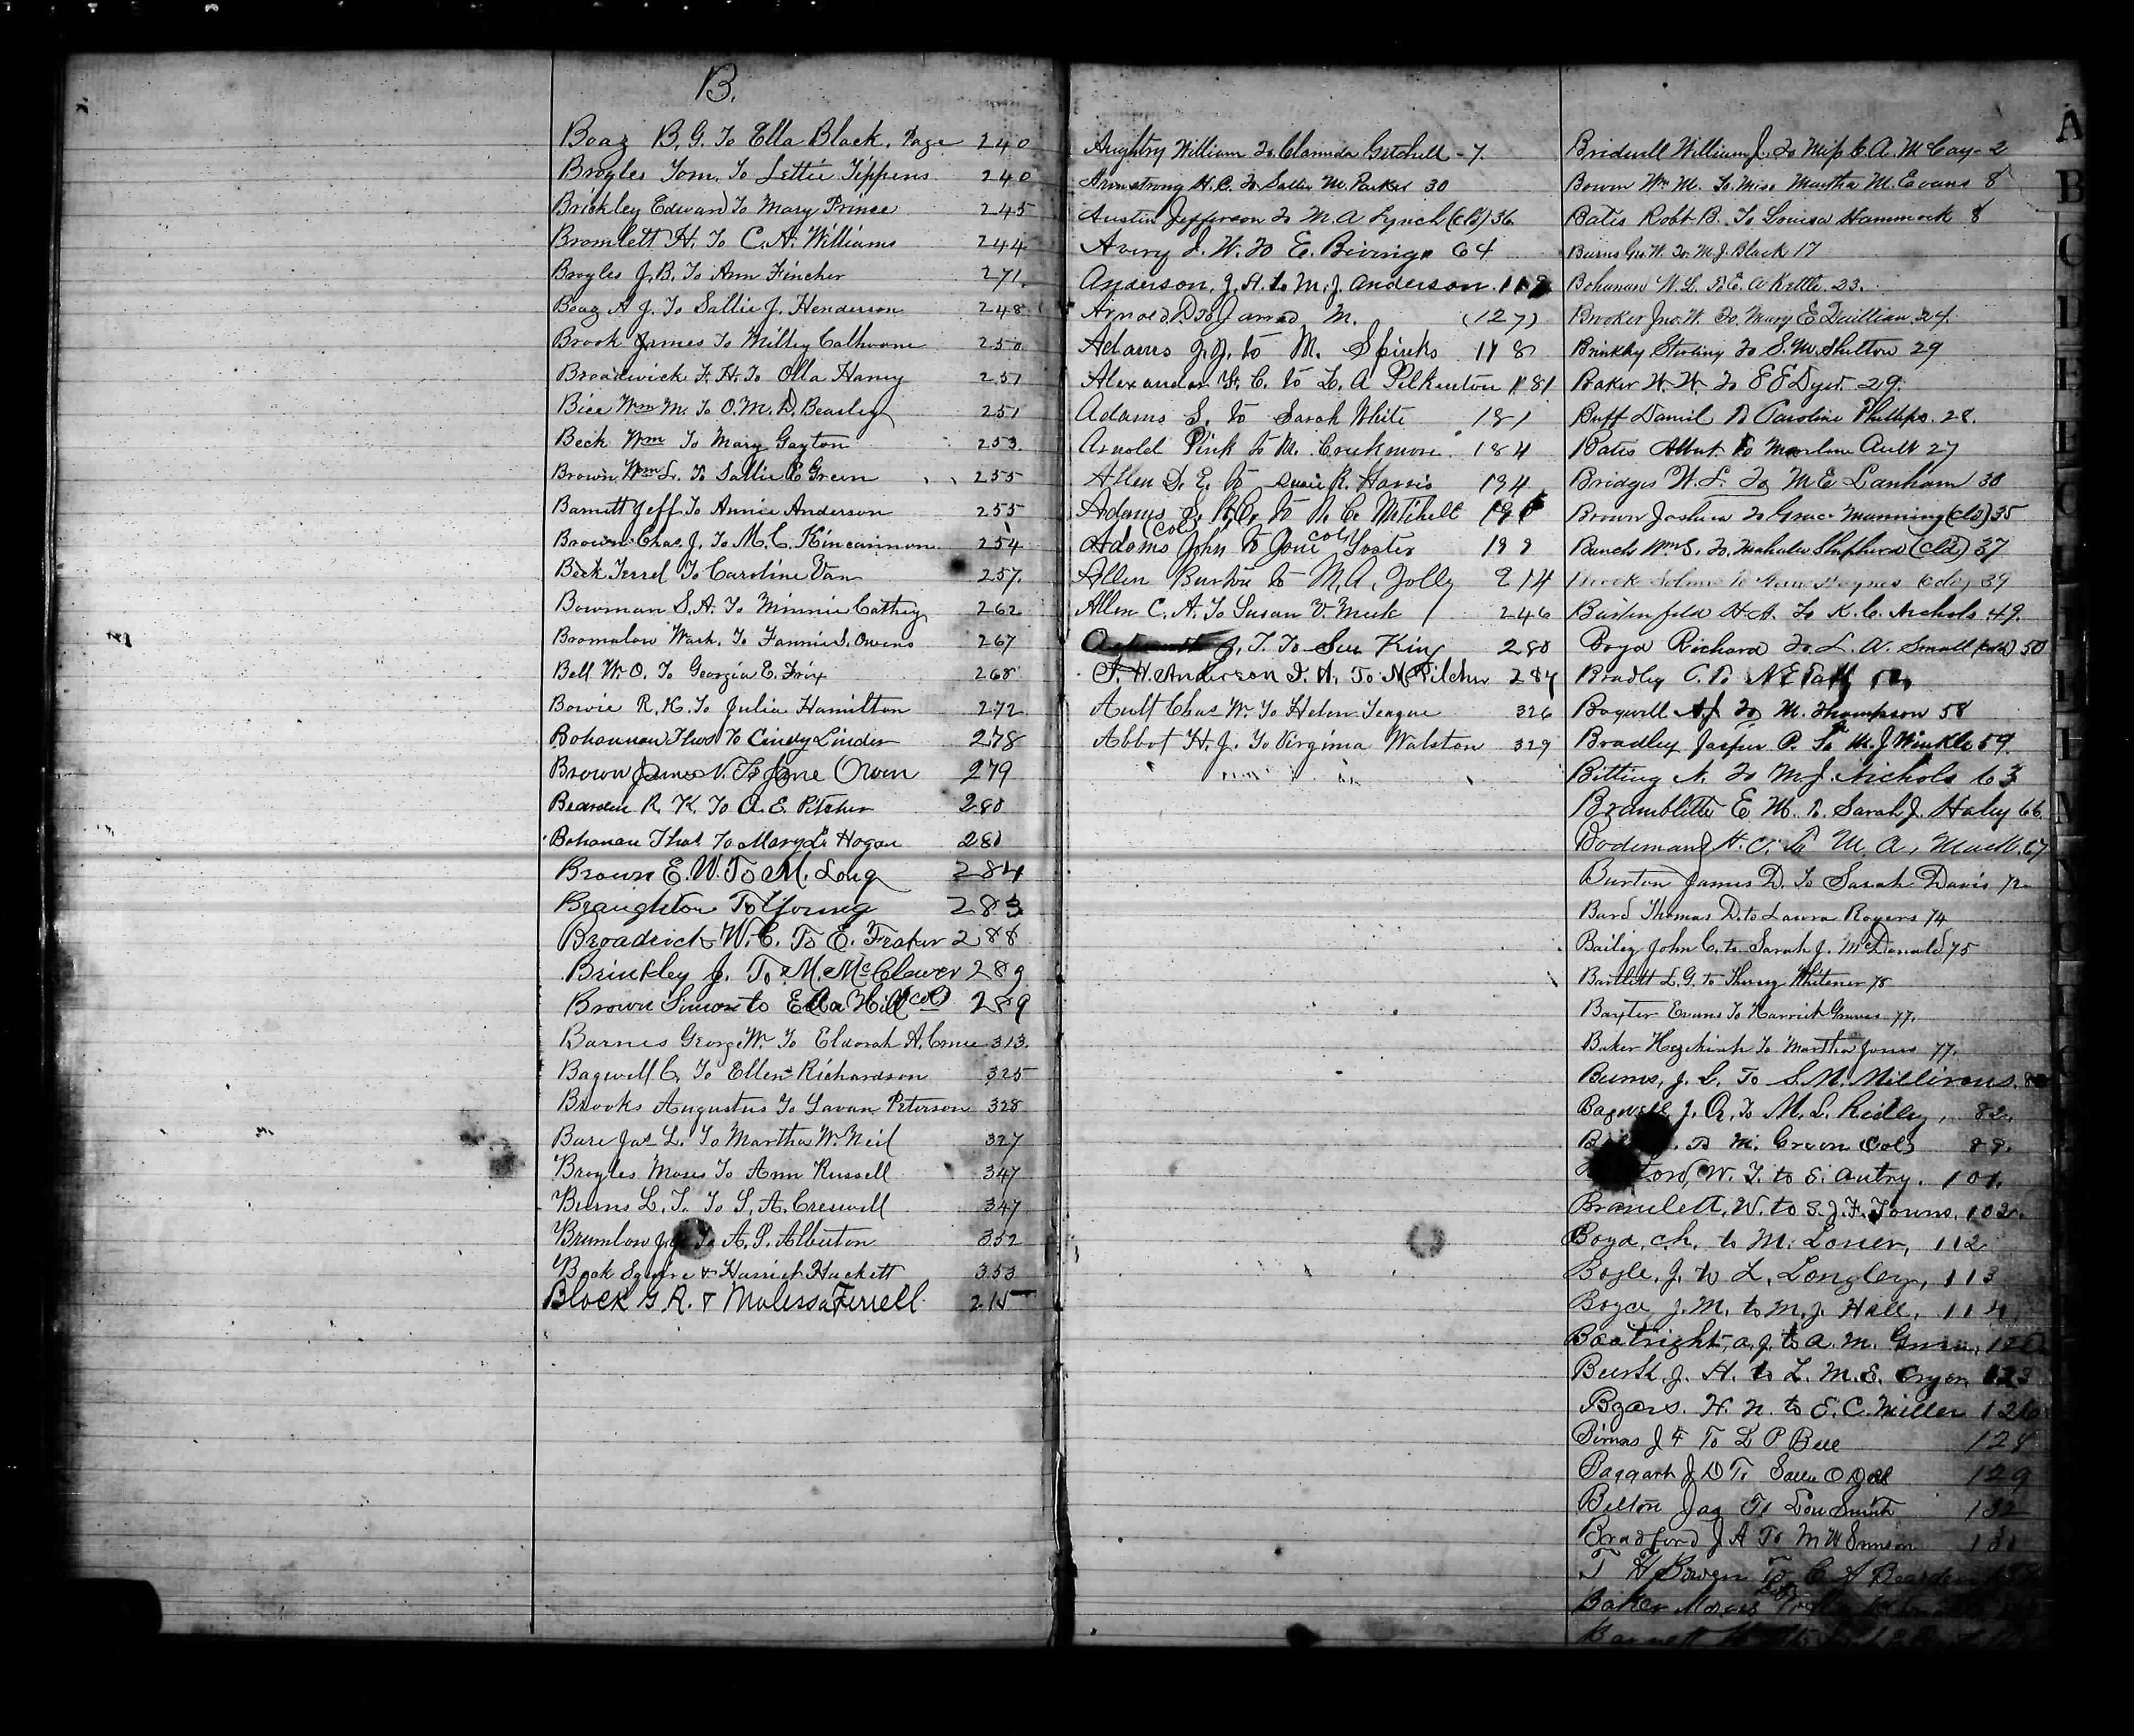 B.
Boaz B. G. To Ella Black. Page 240
Broyles Tom. To Lettie Tippens 240
Brickley Edward To Mary Prince 245
Bromlett H. To C. A. Williams 244
Broyles J. B. To Ann Fincher 271.
Boaz A J. To Sallie J. Henderson 248
Brook James To Milley Calhoune 250
Broadwick F. H. To Olla Haney 251
Bice Wm M. To O. M. D. Beasley 251
Beck Wm To Mary Gayton 253.
Brown Wm L. To Sallie E Green 255
Barnett Jeff To Annie Anderson 255
Brown Chas. J. To M. C. Kincannon 254
Beck Terrel To Caroline Van 257.
Bowman S. A. To Minnie Cathey 262
Bromalow Wash. To Fannie S. Owens 267
Bell W. O. To Georgia E. Frix 268
Bowie R. K. To Julia Hamilton 272
Bohannan Thos To Cindy Linder 278
Brown James N. To Jane Owen 279
Bearden R. K. To A. E. Pitcher 280
Bohanan Thos To Mary L. Hogan 280
Brown E. W. To M. Long 284
Braughton To Young 283
Broadrick W. C. To E. Fraker 288
Brinkley J. To M. McClower 289
Brown Simon to Ella Hill (col) 289
Barnes George W. To Eldorah A. 313.
Bagwell C. To Ellen Richardson 325
Brooks Augustus To Savan Peterson 328
Bare Jas L. To Martha W. Neil 327
Broyles Moses To Ann Russell 347
Burns L. T. To S. A. Creswell 347
Brumlow J. To A. S. Alberton 352
Book Squire & Harriet Hackett 353
Block G R. & Malissa Ferrell 215
Aughtry William To Clarinda Getchell - 7.
Armstrong H. C. To Sallie M. Parker 30
Austin Jefferson To M. A Lynch (cld) 36
Avery J. W. To E. Bivings 64
Anderson, J. H. to M. J. Anderson.
Arnold D. To M. (127)
Adams J. J. to M. Spinks 178
Alexander H. C. to L. A Pilkenton 181
Adams S. to Sarah White 181
Arnold Pink to M. 184
Allen D. E. to Susie R. Harris 194
Adams S. to Mitchell
Adams (col) John to Jane (col) Foster 199
Allen Burton to M. A. Jolly 214
Allen C. A. To Susan V. Meek 246
J. T. To Sue King 280
T. H. Anderson T. H. To N Pilcher 284
Ault Chas W. To Helen Teague 326
Abbot H. J. To Virginia Walston 329
A
B
Bridwell William J. To Miss C A. McCay - 2
Bowen Wm M. To Miss Martha M. Evans 8
Bates Robt B. To Louisa Hammock 8
Burns Geo W. To M. J. Black 17
Bohanan W. L. To E. A Kettle 23.
Brooker Jno. W. To Mary E Quillian 24.
Brinkley Sterling To S. M. Shelton 29
Baker W. W. To E E Dyer. 29.
Buff Daniel To Caroline Phillips. 28.
Bates Albert To Ault 27
Bridges W. L. To M E Lanham 30
Brown Joshua To Grace Manning (cld) 35
Bunch Wm S. To Mahala Shepherd (cld) 37
(cld) 39
Busterfeld H. A. To K. C. Nichols 49.
Boyd Richard To L. A. Small (cold) 50
Bradley C. To
Bagwell A J To M. Thompson 58
Bradley Jasper P. To M. J Winkle 59.
Bitting N. To M. J. Nichols 63
Bramblette E M. To Sarah J. Haley 66
H. C. To M. A. 67
Burton James D. To Sarah Davis 72
Burd Thomas D. to Laura Rogers 74
Bailey John C. to Sarah J. McDonald 75
Bartlett L. G. to Whitener 78
Baxter Evans To Harriet Graves 77.
Baker Hezekiah To Martha Jones 77.
Burns, J. L. To S. M. Millirons.
Bagwell J. A. To M. L. Ridley, 82.
To M. Green Col) 88.
W. T. to E. Autry. 101.
Bramlett, W. to S. J. F. Towns. 103.
Boyd, C. h. to M. Loner, 112
Bogle, J. to L. Longley, 113
Boyd, J. M. to M. J. Hall, 114
Boatright, A. J. to A. M.
J. H. to L. M. E. Cryer 123
Byars. H. N. to E. C. Miller 126
J F To L P Bell 128
Baggart J D To Sallie O Dell 129
Belton Jas To Lou Smith 132
Bradford J A To M W 131
T H Bowen To C A Bearden
Baker Moses
Barnett